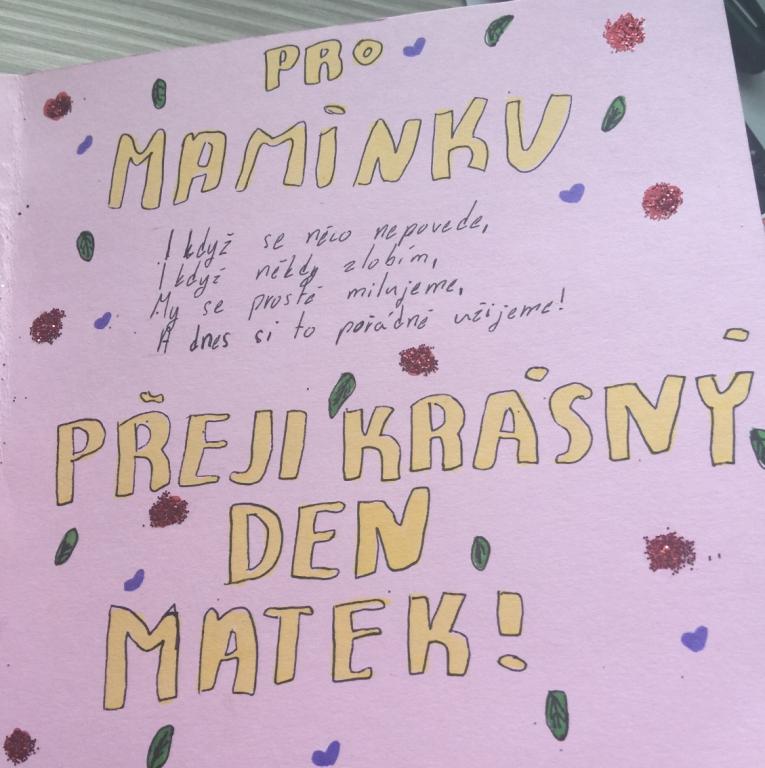 PRO
MAMINKU
I když se něco nepovede,
I když někdy zlobím,
My se prostě milujeme,
A dnes si to pořádně užijeme!
PŘEJI KRÁSNÝ
DEN
MATEK!